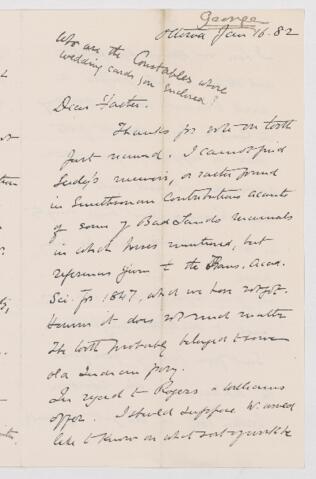 George
Ottawa Jan 16. 82
Who are the Constables whose
wedding cards you enclosed?
Dear Father.
Thanks for note on tooth
just received. I cannot find
Leidy's memoir, or rather found
in Smithsonian Contributions accounts
of some of Bad Lands mammals
in which horses mentioned, but
references given to the Trans. Acad.
Sci. for 1847, which we have not got.
However it does not much matter
The tooth probably belonged to some
old Indian pony.
In regard to Rogers & Williams
offer. I should suppose W. would
like to know on what sort of